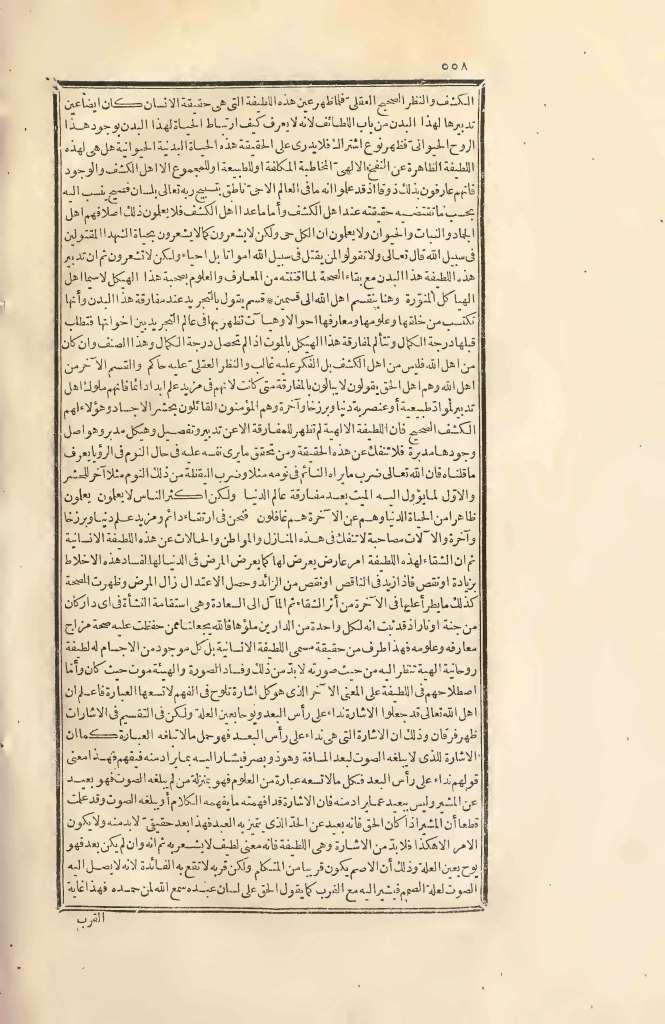 ٥٥٨
الكشف والنظر الصحيح العقلى فلما ظهر عين هذه اللطيفة التى هى حقيقة الانسان كان ايضا عين
تدبيرها لهذا البدن من باب اللطائف لانه لا يعرف كيف ارتباط الحياة لهذا البدن بوجود هذا
الروح الحيوانى فظهر نوع اشتراك فلا يدرى على الحقيقة هذه الحياة البدنية الحيوانية هل هى لهذه
اللطيفة الظاهرة عن النفخ الالهى المخاطبة المكلفة او للطبيعة او للمجموع الا اهل الكشف والوجود
فانهم عارفون بذلك ذوقا اذ قد علموا انه ما فى العالم الا حى ناطق بتسبيح ربه تعالى بلسان فصيح ينسب اليه
بحسب ما تقتضيه حقيقته عند اهل الكشف وأما ما عدا اهل الكشف فلا يعلمون ذلك اصلا فهم اهل
الجماد والنبات والحيوان ولا يعلمون ان الكل حى ولكن لا يشعرون كما لا يشعرون بحياة الشهدا المقتولين
فى سبيل الله قال تعالى ولا تقولوا لمن يقتل فى سبيل الله امواتا بل احياء ولكن لا تشعرون ثم ان تدبير
هذه اللطيفة هذا البدن مع بقاء الصحة لما اقتنته من المعارف والعلوم بصحبة هذا الهيكل لا سيما اهل
الهياكل المنوّرة وهنا ينقسم اهل الله الى قسمين * قسم يقول بالتجريد عند مفارقة هذا البدن وأنها
تكتسب من خلقها وعلومها ومعارفها احوالا وهيآت تظهر بها فى عالم التجريد بين اخواتها فتطلب
قبلها درجة الكمال وتتألم لمفارقة هذا الهيكل بالموت اذ لم تحصل درجة الكمال وهذا الصنف وان كان
من اهل الله فليس من اهل الكشف بل الفكر عليه غالب والنظر العقلى عليه حاكم والقسم الآخر من
اهل الله وهم اهل الحق يقولون لا يبالون بالمفارقة متى كانت لانهم فى مزيد علم ابدا دائما فانهم ملوك اهل
تدبير لمواد طبيعية أو عنصرية دنيا وبرزخا وآخرة وهم المؤمنون القائلون بحشر الاجساد وهؤلاء لهم
الكشف الصحيح فان اللطيفة الالهية لم تظهر للمفارقة الا عن تدبير وتفصيل وهيكل مدبر وهو اصل
وجودها مدبرة فلا تنفك عن هذه الحقيقة ومن تحقق ما يرى نفسه عليه فى حال النوم فى الرؤيا يعرف
ما قلناه فان الله تعالى ضرب ما يراه النائم فى نومه مثلا وضرب اليقظة من ذلك النوم مثلا آخر للحشر
والاول لما يؤول اليه الميت بعد مفارقة عالم الدنيا ولكن اكثر الناس لا يعلمون يعلمون
ظاهرا من الحياة الدنيا وهم عن الآخرة هم غافلون فنحن فى ارتقاء دائم ومزيد علم دنيا وبرزخا
وآخرة والآلات مصاحبة لا تنفك فى هذه المنازل والمواطن والحالات عن هذه اللطيفة الانسانية
ثم ان الشقاء لهذه اللطيفة امر عارض يعرض لها كما يعرض المرض فى الدنيا لها لفساد هذه الاخلاط
بزيادة او نقص فاذا زيد فى الناقص او نقص من الزائد وحصل الاعتدال زال المرض وظهرت الصحة
كذلك ما يطرأ عليها فى الآخرة من أثر الشقاء ثم المآل الى السعادة وهى استقامة النشأة فى اى دار كان
من جنة او نار اذ قد ثبت انه لكل واحدة من الدارين ملؤها فالله يجعلنا ممن حفظت عليه صحة مزاج
معارفه وعلومه فهذا طرف من حقيقة مسمى اللطيفة الانسانية بل كل موجود من الاجسام له لطيفة
روحانية الهية تنظر اليه من حيث صورته لا بدّ من ذلك وفساد الصورة والهيئة موت حيث كان وأمّا
اصطلاحهم فى اللطيفة على المعنى الآخر الذى هو كل اشارة تلوح فى الفهم لا تسعها العبارة فاعلم ان
اهل الله تعالى قد جعلوا الاشارة نداء على رأس البعد وبوحا بعين العلة ولكن فى التقسيم فى الاشارات
ظهر فرقان وذلك ان الاشارة التى هى نداء على رأس البعد فهو حمل ما لا تبلغه العبارة كما ان
الاشارة للذى لا يبلغه الصوت لبعد المسافة وهو ذو بصر فيشار اليه بما يراد منه فيفهم فهذا معنى
قولهم نداء على رأس البعد فكل ما لا تسعه عبارة من العلوم فهو بمنزلة من لم يبلغه الصوت فهو بعيد
عن المشير وليس ببعيد عما يراد منه فان الاشارة قد افهمته ما يفهمه الكلام أو يبلغه الصوت وقد علمت
قطعا أن المشير اذا كان الحق فانه بعيد عن الحدّ الذى يتميز به العبد فهذا بعد حقيقى لا بد منه ولا يكون
الامر الا هكذا فلا بدّ من الاشارة وهى اللطيفة فانه معنى لطيف لا يشعر به ثم انه وان لم يكن بعد فهو
بوح بعين العلة وذلك أن الاصم يكون قريبا من المتكلم ولكن قربه لا تقع به الفائدة لانه لا يصل اليه
الصوت لعلة الصمم فيشير اليه مع القرب كما يقول الحق على لسان عبده سمع الله لمن حمده فهذا غاية
القرب